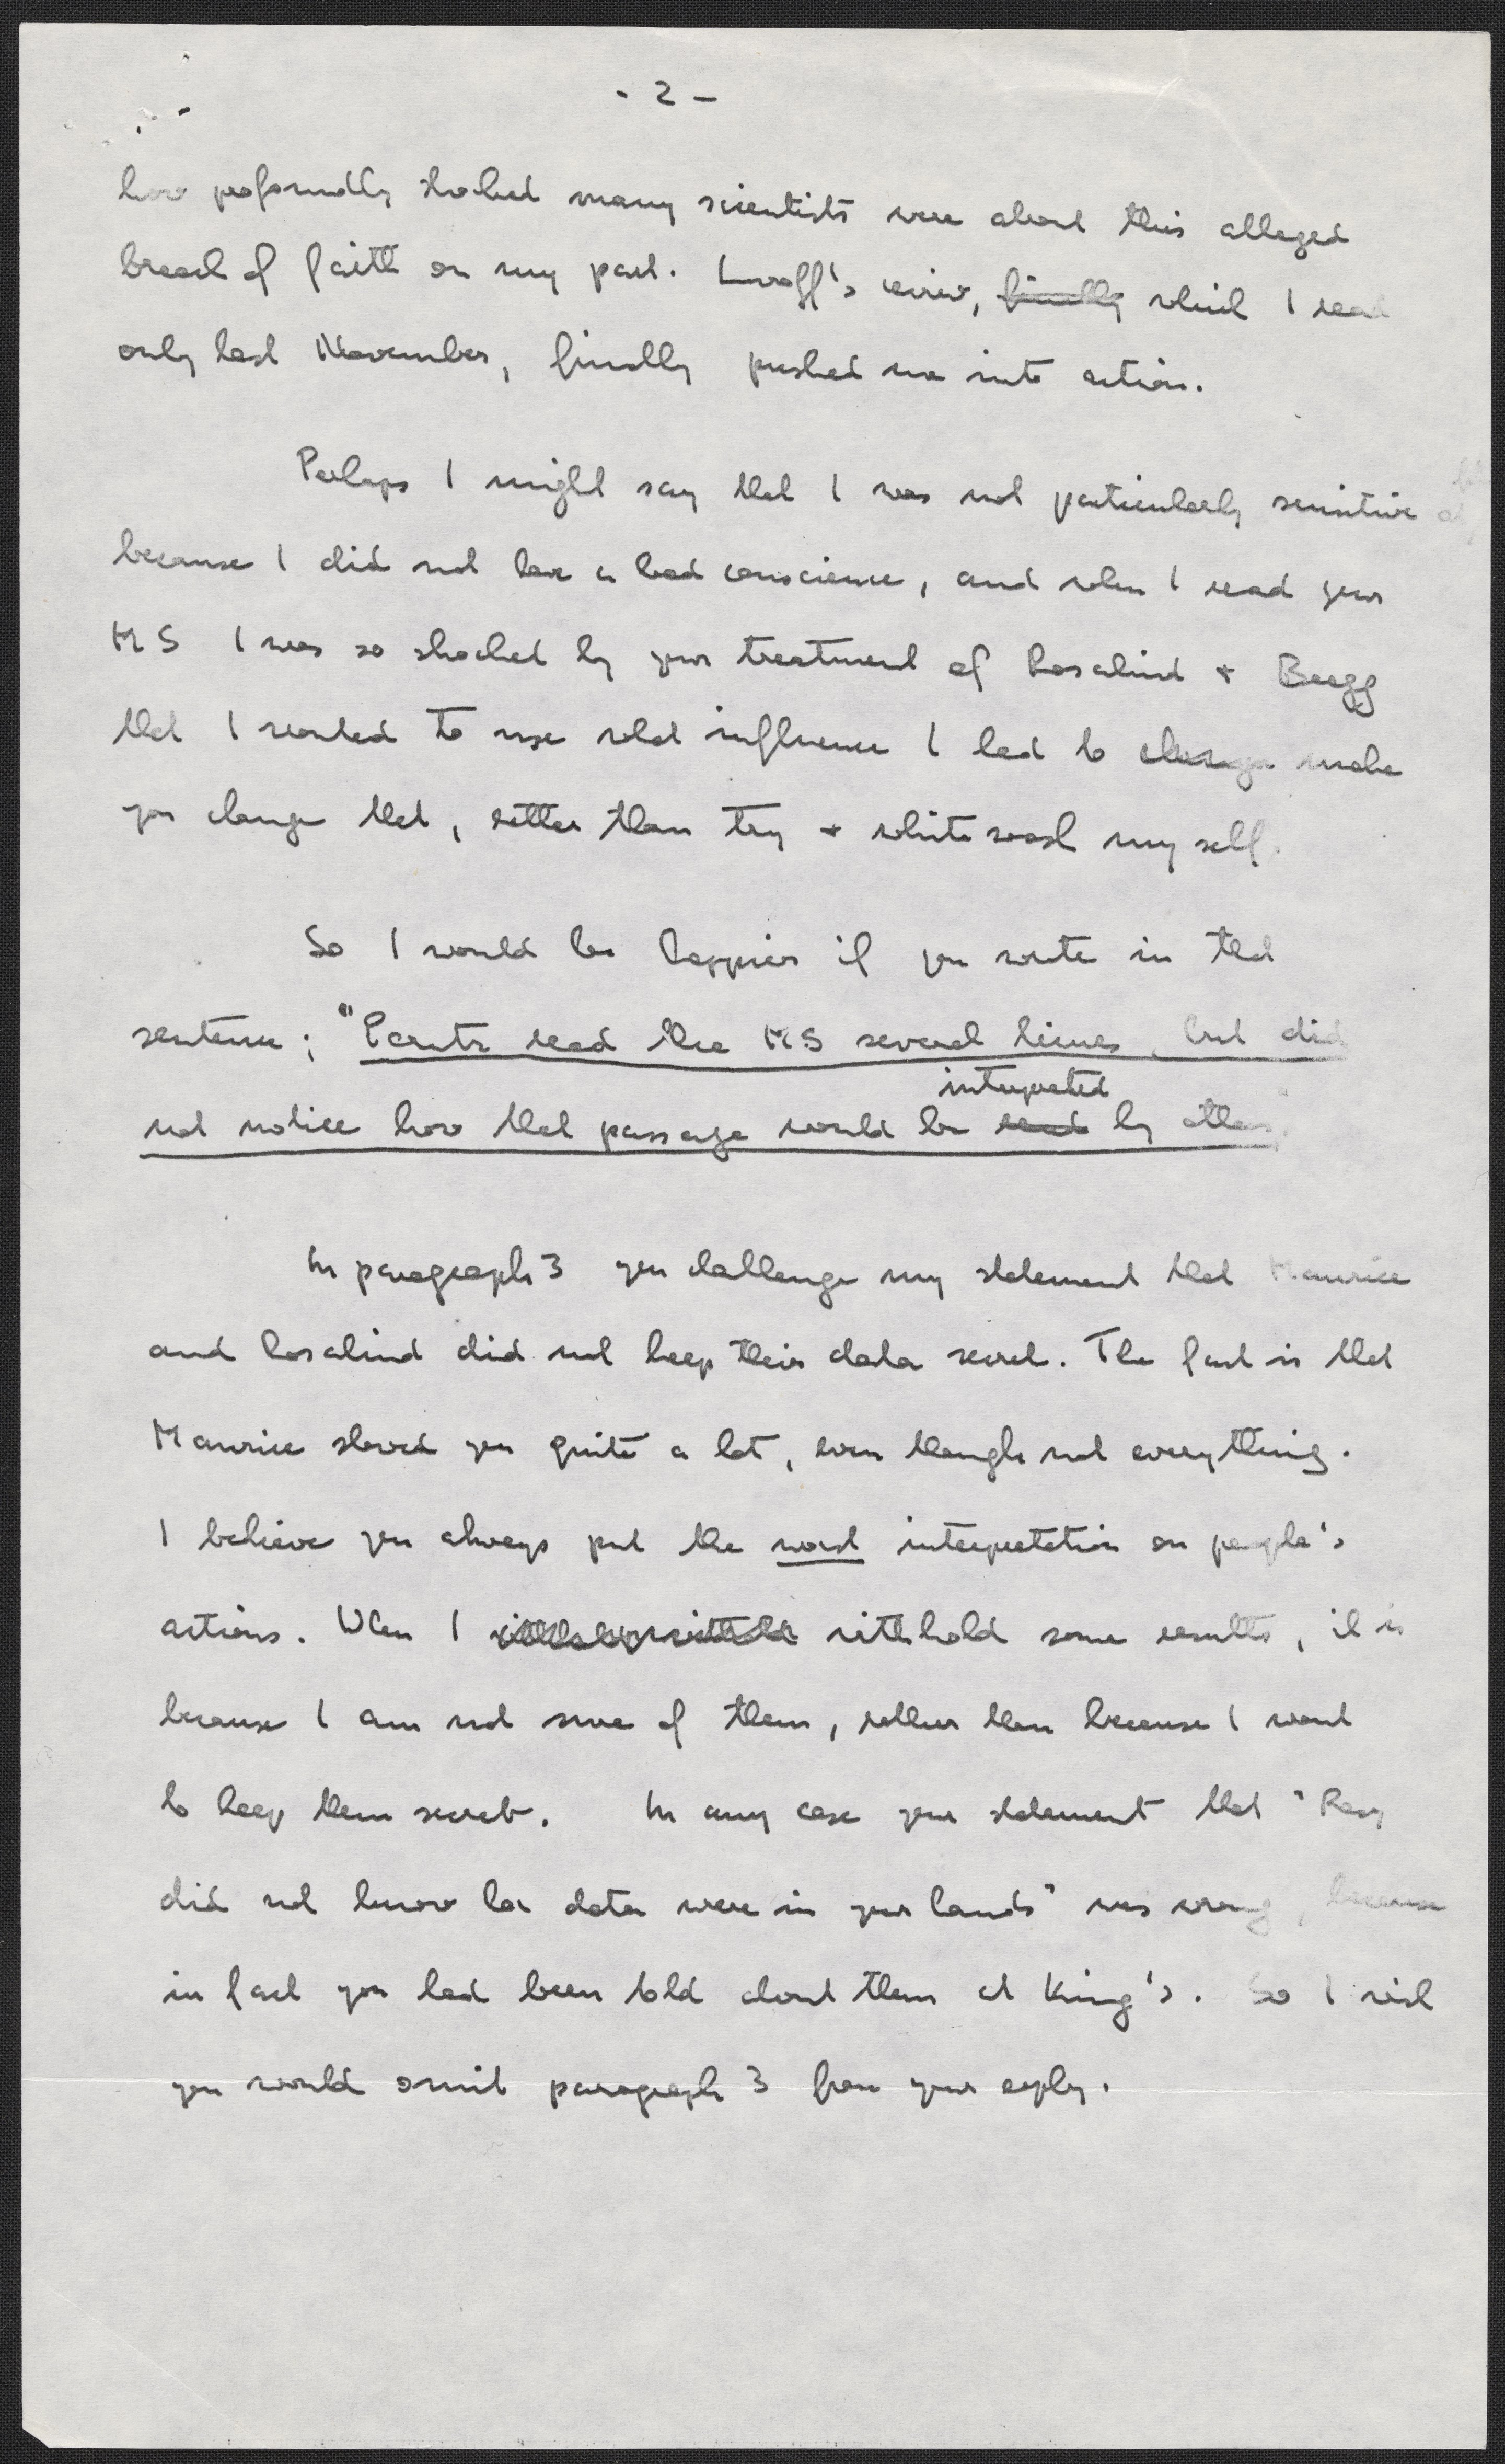 - 2 -
how profoundly shocked many scientists were about this alleged
breach of faith on my part. Lwoff's review, finally which I read
only last November, finally pushed me into action.
Perhaps I might say that I was not particularly sensitive
because I did not have a bad conscience, and when I read your
MS I was so shocked by your treatment of Rosalind + Bragg
that I wanted to use what influence I had to change make
you change that, rather than try + whitewash myself.
So I would be happier if you wrote in that
sentence; "Perutz read the MS several times, but did
interpreted
not notice how that passage would be read by others
In paragraph 3 you challenge my statement that Maurice
and Rosalind did not keep their data secret. The fact is that
Maurice showed you quite a lot, even though not everything.
I believe you always put the worst interpretation on people's
actions. When I withhold some results, it is
because I am not sure of them, rather than because I want
to keep them secret. In any case your statement that "Rosy
did not know her data were in your hands" was wrong, because
in fact you had been told about them at King's. So I wish
you would omit paragraph 3 from your reply.